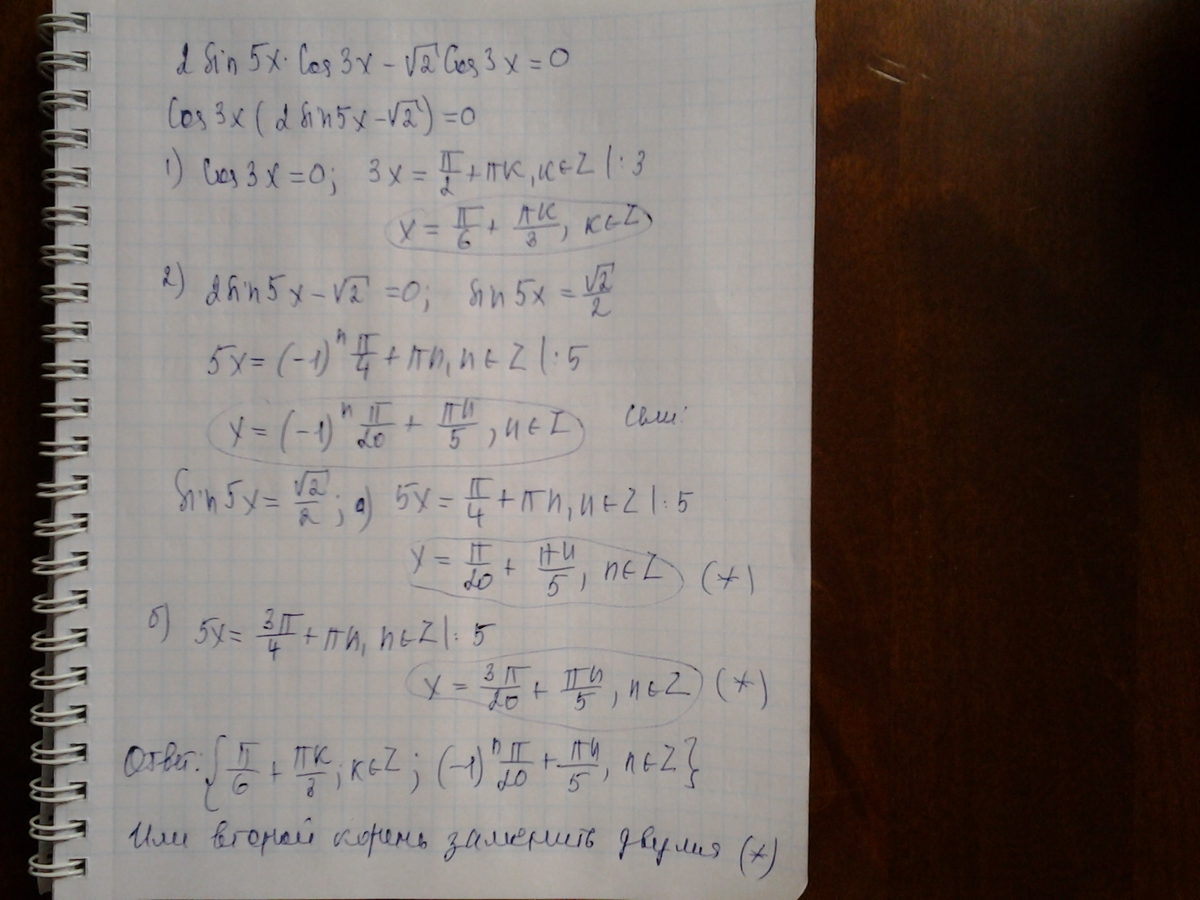 2 sin 5x · Cos 3x − √2 Cos 3x = 0
Cos 3x (2 sin 5x − √2) = 0
1) Cos 3x = 0; 3x = π/2 + πк, к ∈ Z |: 3
x = π/6 + πк/3, к ∈ Z
2) 2 sin 5x − √2 = 0; sin 5x = √2/2
5x = (−1)ⁿ π/4 + πn, n ∈ Z |: 5
x = (−1)ⁿ π/20 + πn/5, n ∈ Z
sin 5x = √2/2; а) 5x = π/4 + πn, n ∈ Z |: 5
x = π/20 + πn/5, n ∈ Z (*)
б) 5x = 3π/4 + πn, n ∈ Z |: 5
x = 3π/20 + πn/5, n ∈ Z (*)
Ответ: { π/6 + πк/3; к ∈ Z; (−1)ⁿ π/20 + πn/5, n ∈ Z }
Или второй корень заменить двумя (*)